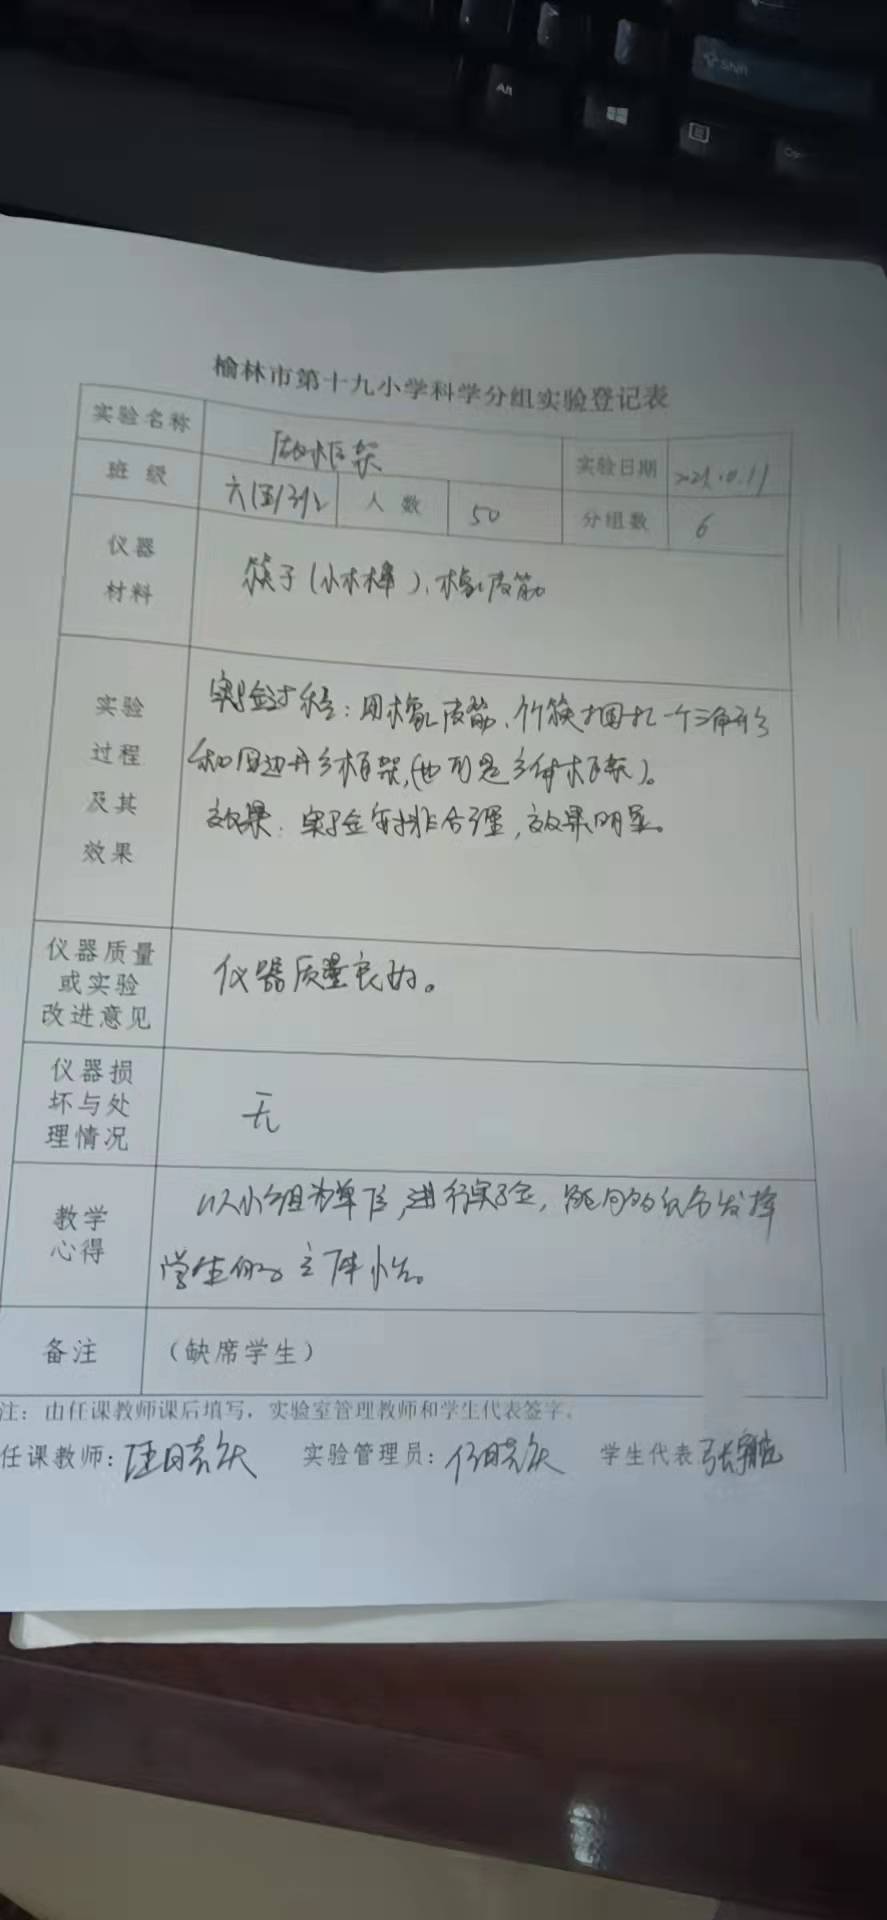 榆林市第十九小学科学分组实验登记表
实验名称 做框架 实验日期 2021.10.11
班级 人数 50 分组数 6
仪器
材料
筷子(小木棒)、橡皮筋
实验
过程
及其
效果
实验过程:用橡皮筋、竹筷捆扎一个三角形
和四边形框架,(也可是多种框架)。
效果:实验安排合理,效果明显。
仪器质量
或实验
改进意见
仪器质量良好。
仪器损
坏与处
理情况
无
教学
心得
以小组为单位,进行实验,能充分发挥
学生的主体性。
备注 (缺席学生)
注:由任课教师课后填写,实验室管理教师和学生代表签字。
任课教师: 实验管理员: 学生代表